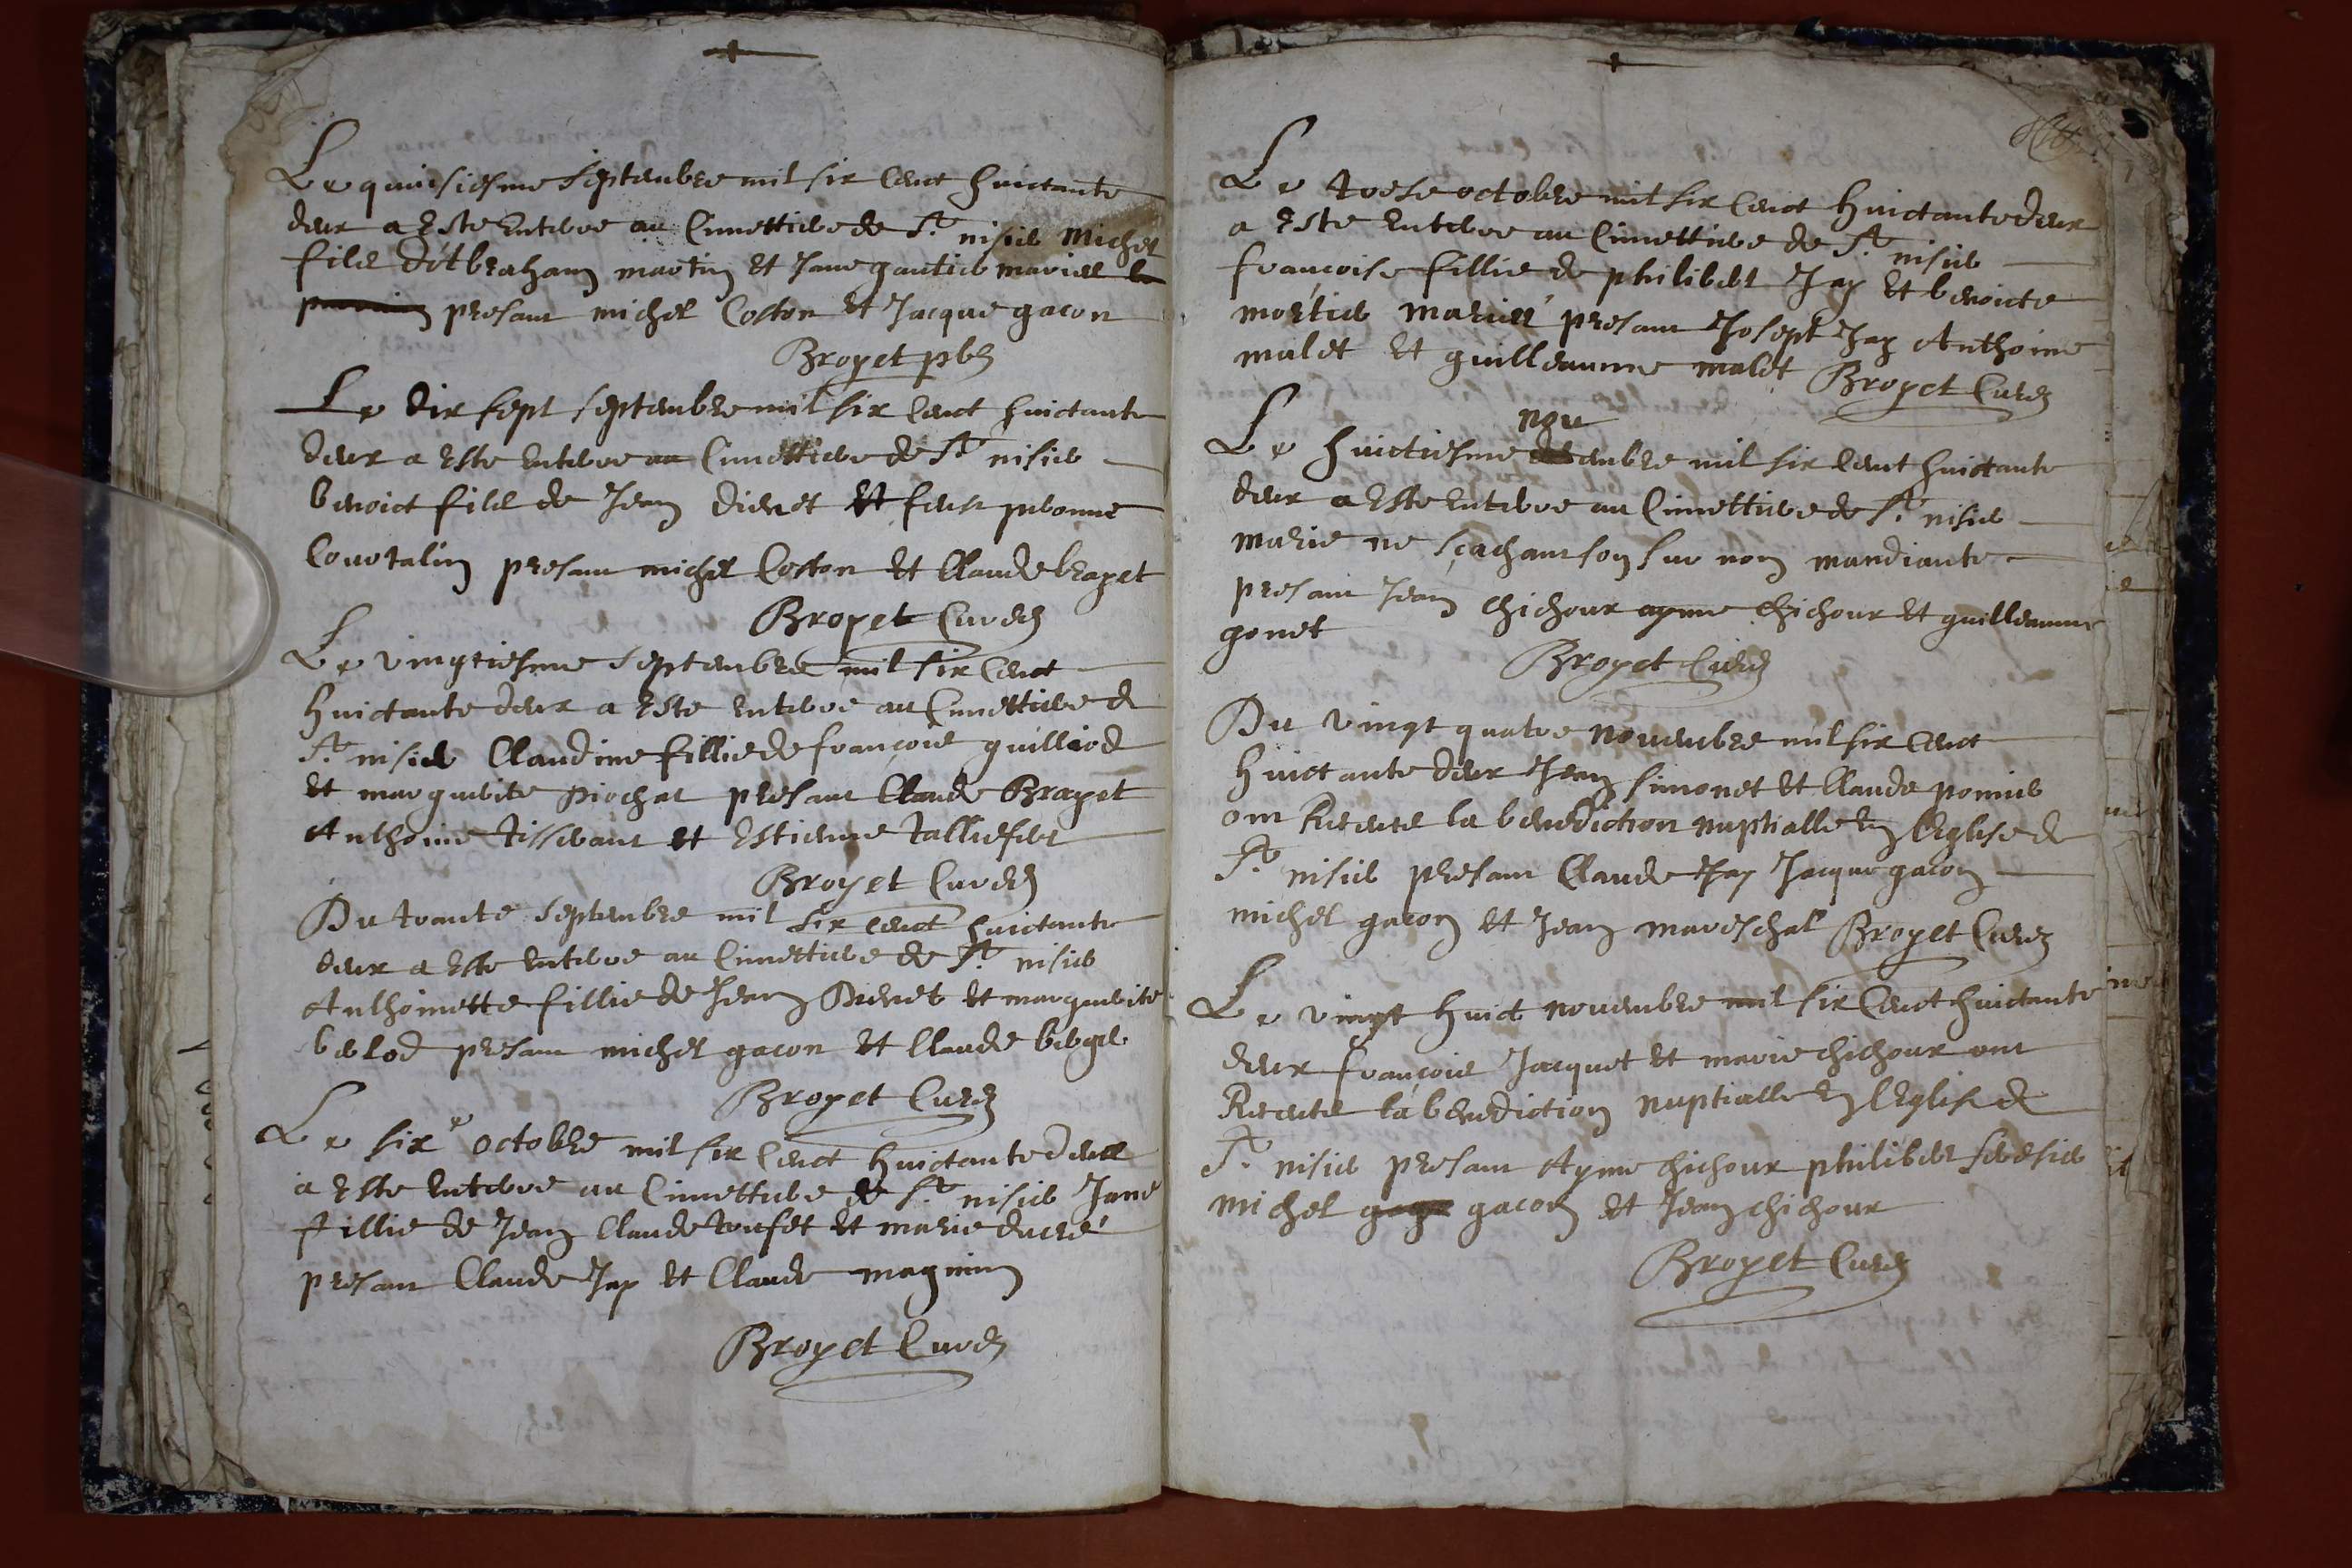 Le quinsiesme septembre mil six cent huictante
deux a esté enterre au cimettiere de St nisier Michel
fils d'Abraham martin et Jane gautier mariés
presant michel Coston et Jacque gacon
Broyet pbr
Le dix sept septembre mil six cent huictante
deux a esté enterre au cimettiere de St nisier
benoict fils de Jean dienet et feue pronne
Courtalin presant michel Coston et Claude brayet
Broyet Curé
Le vingtiesme septembre mil six cent
huictante deux a esté enterre au cimettiere de
St nisier Claudine fillie de françois guilliod
et marguerite piochat presant Claude Brayet
Anthoine tisserant et Estienne talliefert
Broyet Curé
Du trante septembre mil six cent huictante
deux a esté enterre au cimettiere de St nisier
Anthoinette fillie de Jean Dienet et marguerite
berlod presant michel gacon et Claude berger
Broyet Curé
Le sixe octobre mil six cent huictante deux
a esté enterre au cimettiere de St nisier Jane
fillie de Jean Claude toufet et marie ducré
presant Claude Jay et Claude magnin
Broyet Curé
Le trese octobre mil six cent huictante deux
a esté enterre au cimettiere de St nisier
françoise fillie de philibert Jay et benoicte
mortier mariés presant Josept Jay Anthoine
malet et guilleaume malet Broyet Curé
nou
Le huictiesme embre mil six cent huictante
deux a esté enterre au cimettiere de St nisier
marie ne sçachant son sur nom mandiante
presant Jean chichoux ayme chichoux et guilleaume
gonet
Broyet Curé
Du vingt quatre novembre mil six cent
huictante deux Jean simonet et Claude pomier
ont Receute la benediction nuptialle en l'Eglise de
St nisier presant Claude Jay Jacque gacon
michel gacon et Jean mareschal Broyet Curé
Le vingt huict novembre mil six cent huictante
deux françois Jacquet et marie chichoux ont
Receute la benediction nuptialle en l'Eglise de
St nisier presant Ayme chichoux philibert
michel gacon et Jean chichoux
Broyet Curé